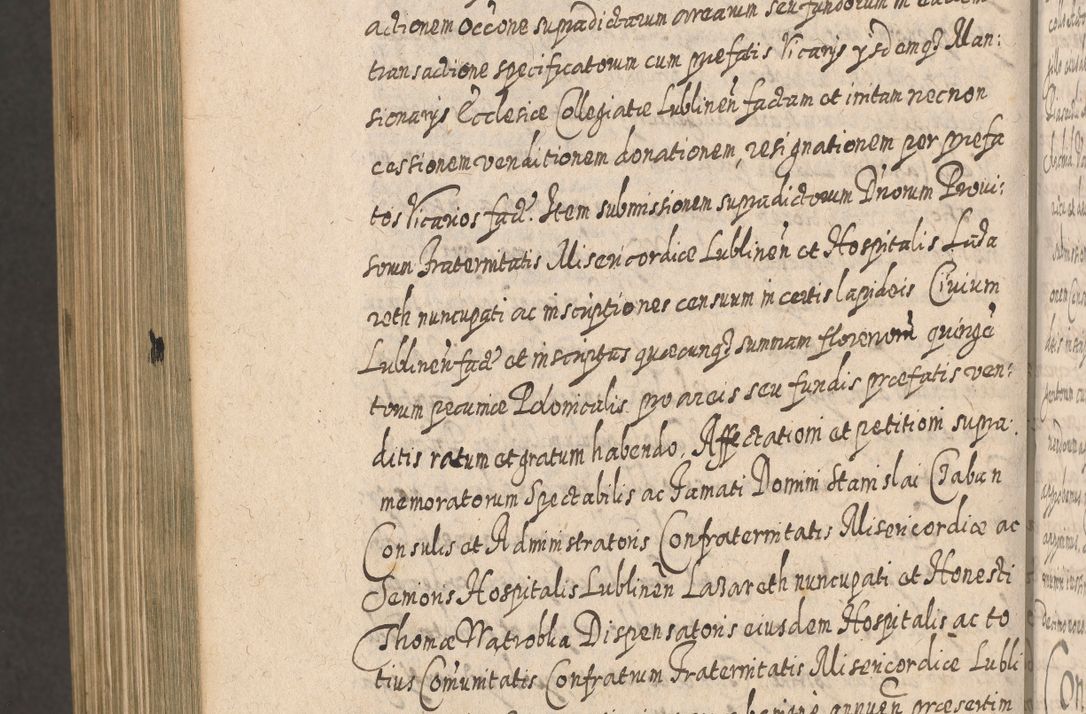 actionem occõne supradictarum arearum seu fundorum in eadem
transactione specificatorum cum præfatis Vicarijs ysdemq3 Man:
sionarijs Ecclesiæ Collegiatæ Lublineñ factam et initam necnon
cessionem venditionem donationem, resignationem per præfa
tos Vicarios fact. Item submissionem supradictorum Dnorum Provi:
sorum Fraternitatis Misericordiæ Lublineñ et Hospitalis Laza
reth nuncupati ac inscriptiones censuum in certis lapideis Civium
Lublineñ fact et inscriptas quæcunq3 summam florenorum quinge
torum pecuniæ Polonicalis pro areis seu fundis præfatis ven:
ditis ratum et gratum habendo. Affectationi et petitioni supra:
memoratorum Spectabilis ac Famati Domini Stanislai Czaban
Consulis et Administratoris Confraternitatis Misericordiæ ac
Senioris Hospitalis Lublineñ Lazareth nuncupati et Honesti
Thomæ Watrobka Dispensatoris eiusdem Hospitalis ac to
tius Comunitatis Confratrum Fraternitatis Misericordiæ Lubli
annueñ præsertim